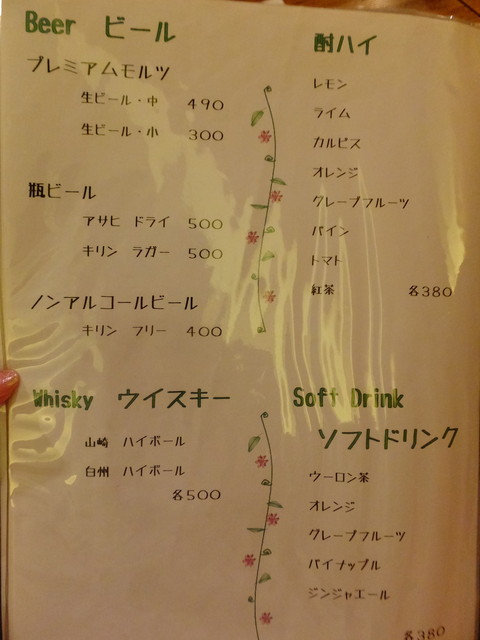 Beer ビール
プレミアムモルツ
生ビール・中 490
生ビール・小 300
瓶ビール
アサヒ ドライ 500
キリン ラガー 500
ノンアルコールビール
キリン フリー 400
Whisky ウイスキー
山崎 ハイボール
白州 ハイボール
各500
酎ハイ
レモン
ライム
カルピス
オレンジ
グレープフルーツ
パイン
トマト
紅茶 各380
Soft Drink
ソフトドリンク
ウーロン茶
オレンジ
グレープフルーツ
パイナップル
ジンジャエール
各380